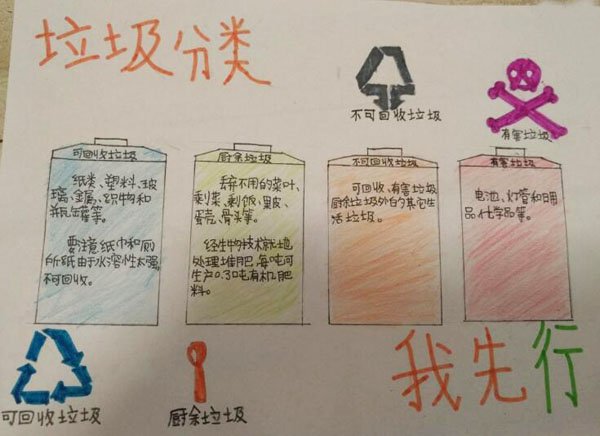 垃圾分类
不可回收垃圾
有害垃圾
可回收垃圾
纸类、塑料、玻
璃、金属、织物和
瓶罐等。
要注意纸巾和厕
所纸由于水溶性太强
不可回收。
厨余垃圾
丢弃不用的菜叶、
剩菜、剩饭、果皮、
蛋壳、骨头等。
经生物技术就地
处理堆肥,每吨可
生产0.3吨有机肥
料。
不可回收垃圾
可回收、有害垃圾
厨余垃圾外的其它生
活垃圾。
有害垃圾
电池、灯管和日用
品化学品等。
可回收垃圾
厨余垃圾
我先行